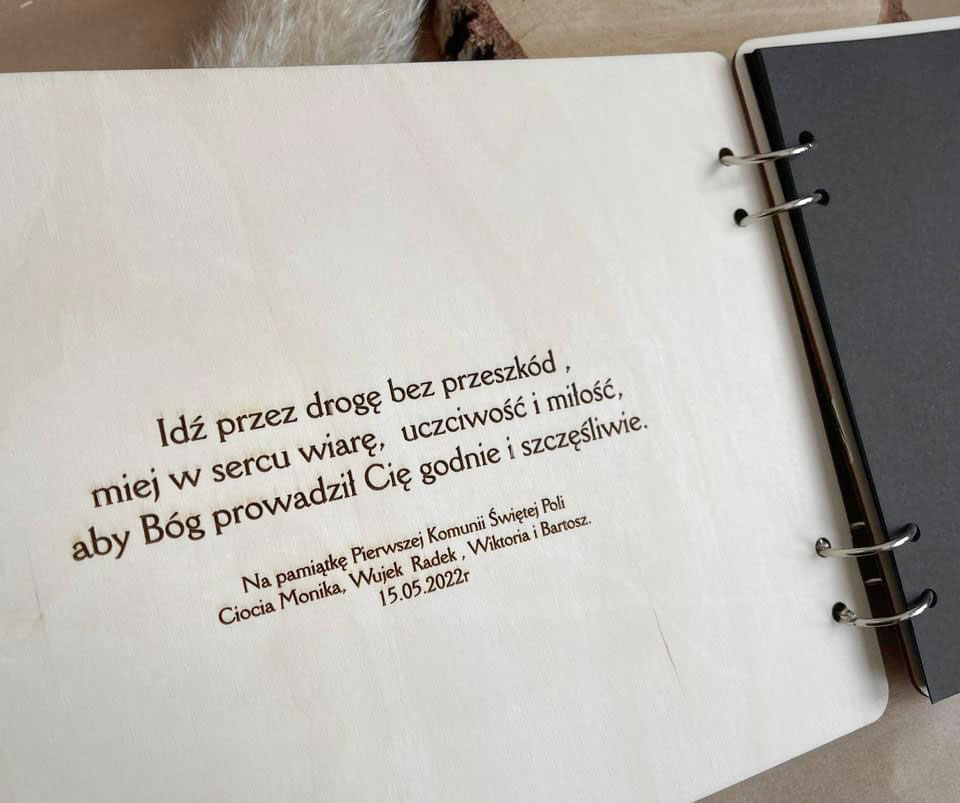 Idź przez drogę bez przeszkód ,
miej w sercu wiarę, uczciwość i miłość,
aby Bóg prowadził Cię godnie i szczęśliwie.
Na pamiątkę Pierwszej Komunii Świętej Poli
Ciocia Monika, Wujek Radek , Wiktoria i Bartosz.
15.05.2022r